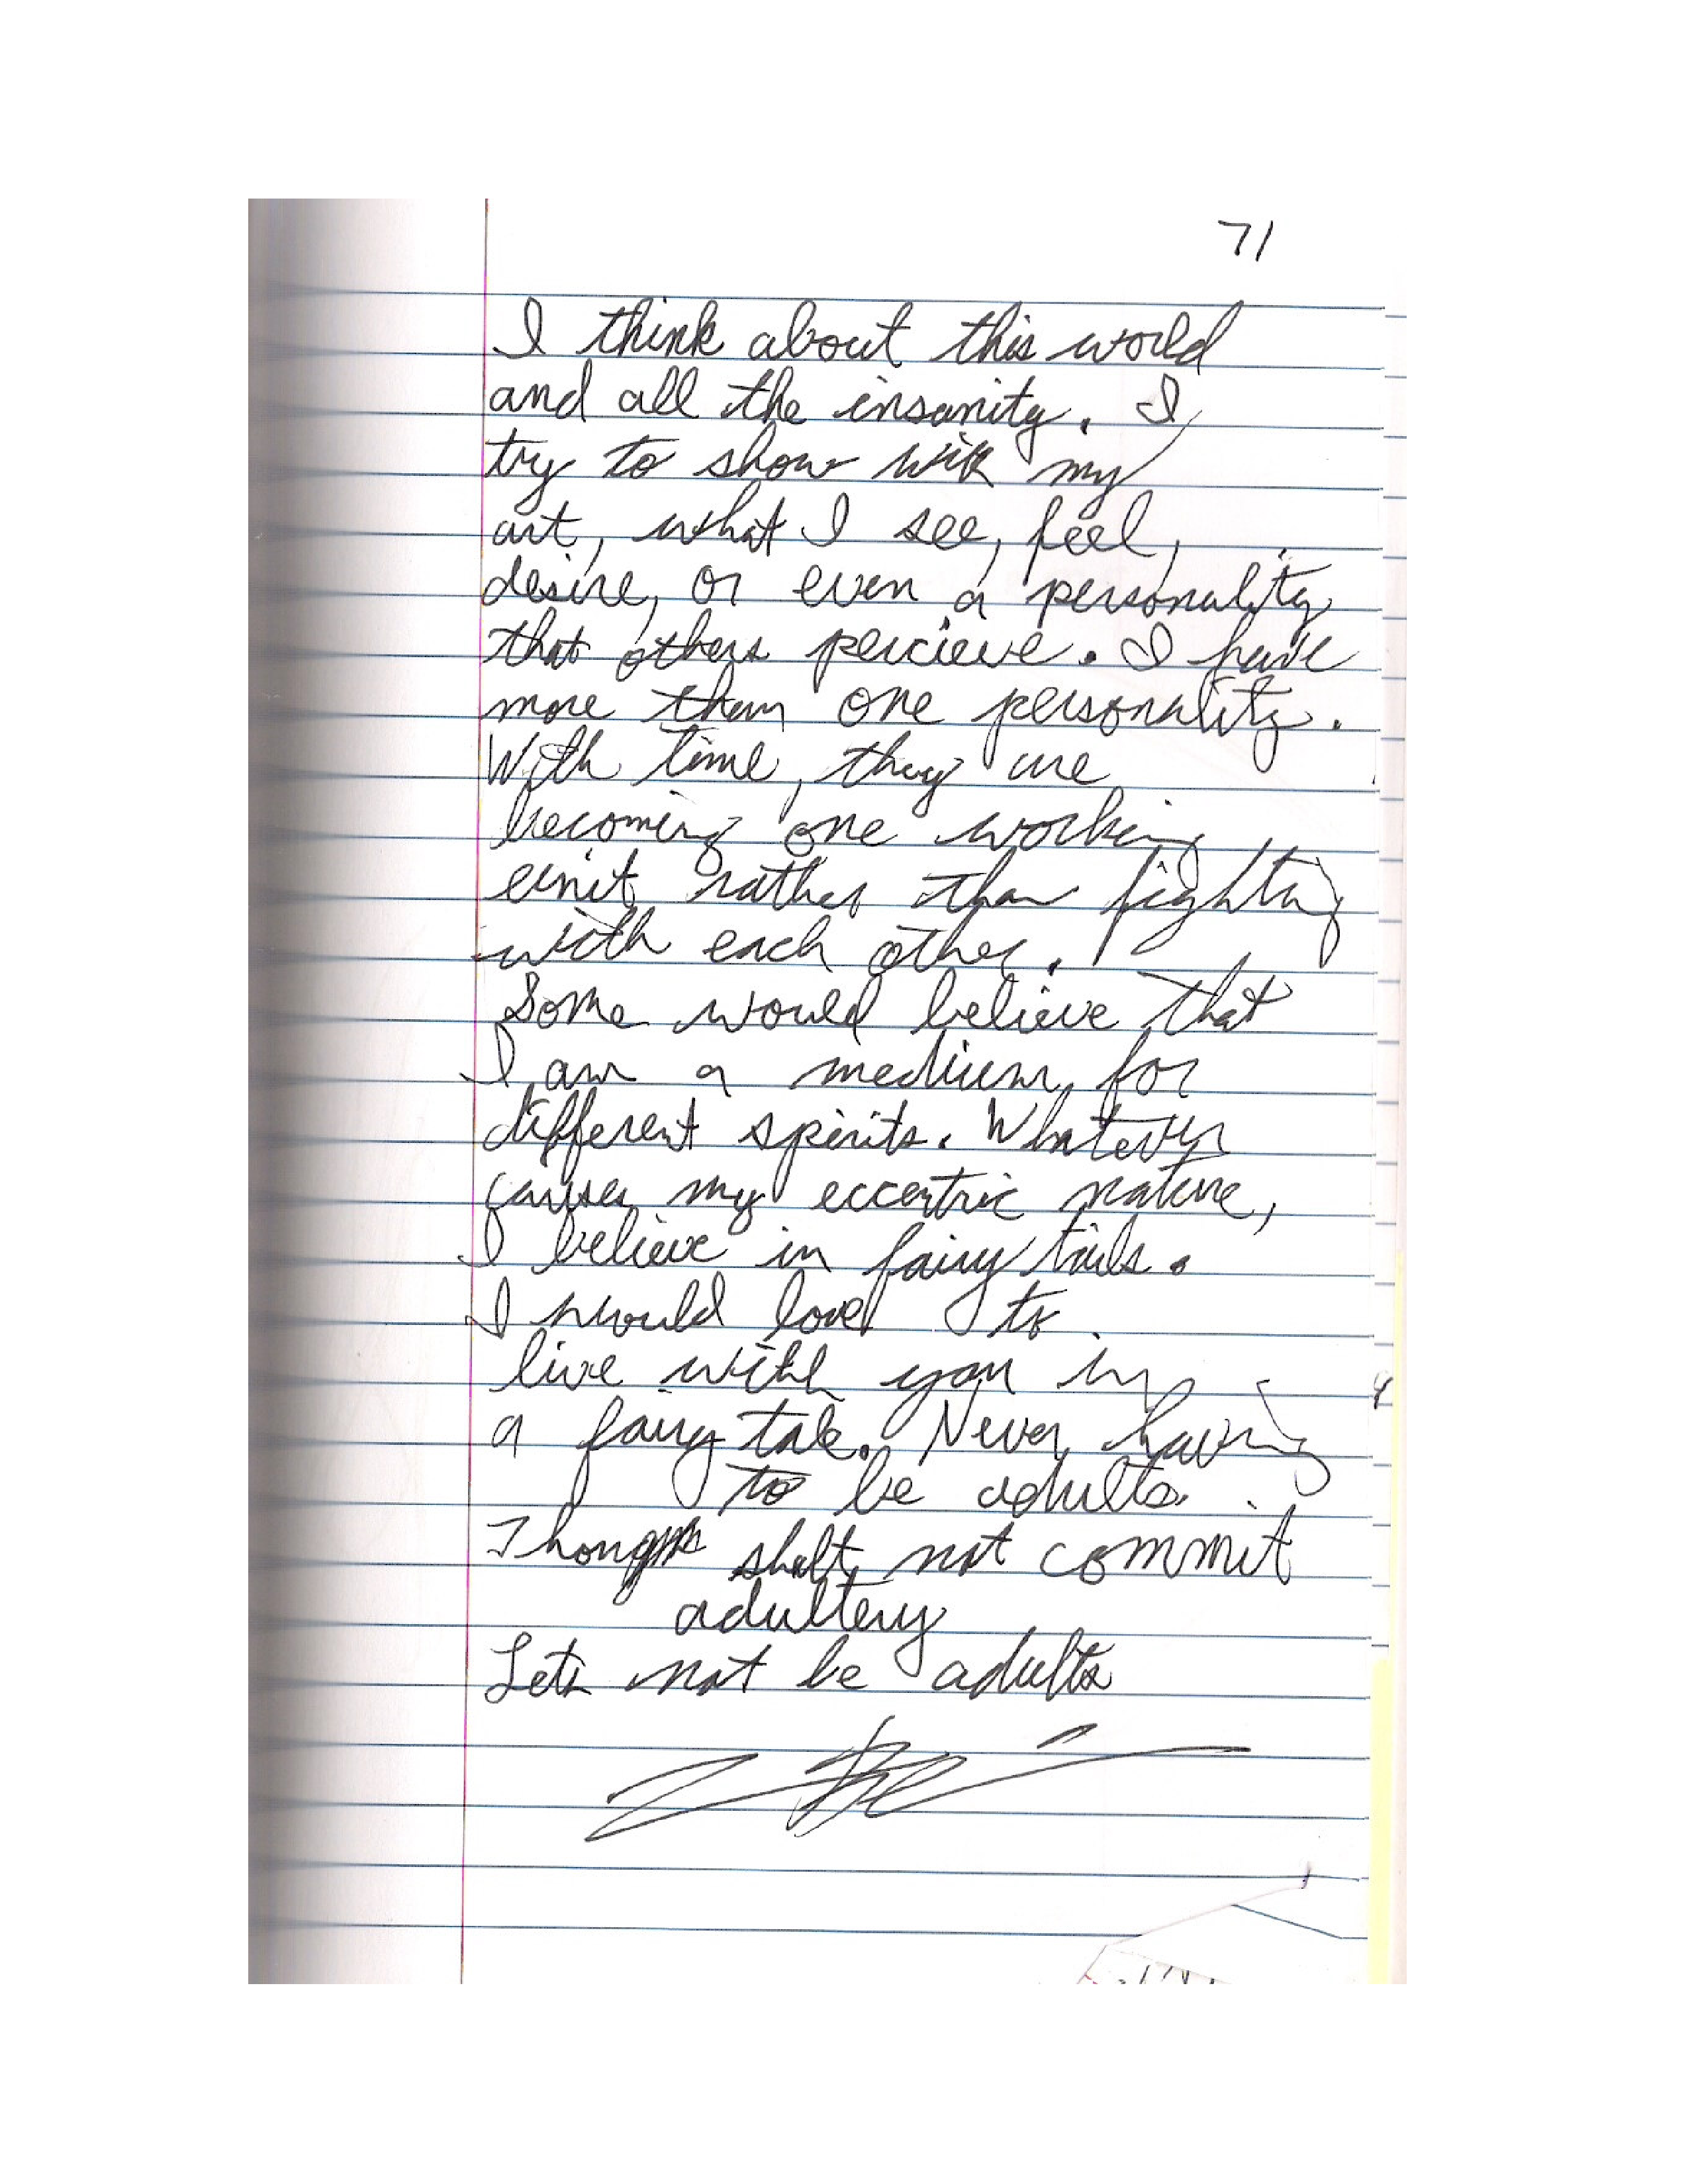 71
I think about this world
and all the insanity. I
try to show with my
art, what I see, feel,
desire, or even a personality
that others percieve. I have
more than one personality.
With time, they are
becoming one working
unit rather than fighting
with each other.
Some would believe that
I am a medium for
different spirits. Whatever
causes my eccentric nature,
I believe in fairy tails.
I would love to
live with you in
a fairy tale. Never having
to be adults.
Thou shalt not commit
adultery
Lets not be adults